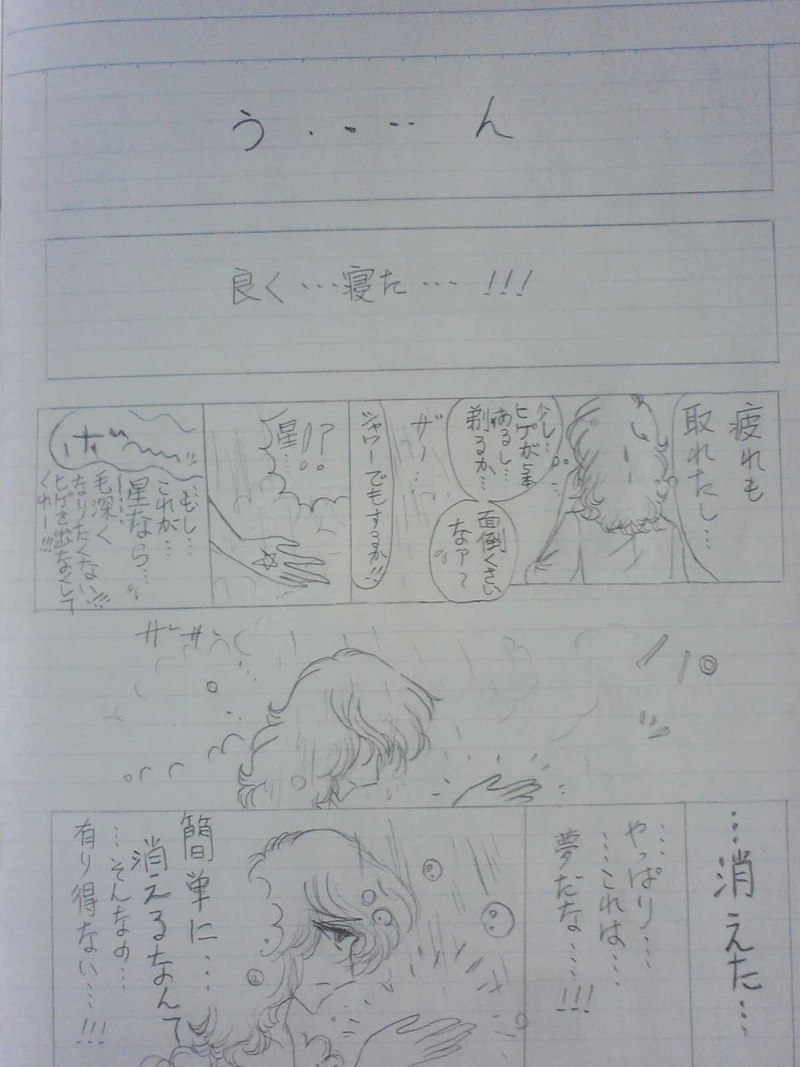 う・・・・ん
良く…寝た…!!!
疲れも
取れたし…
少し…
ヒゲが5本
あるし…
剃るか…
面倒くさい
なァ〜
ザー…
シャワーでもするか!!
星…!?
…もし…
これが…
星なら…
毛深く
なりたくない!!!
ヒゲを出なくして
くれー!!!
ボー
ザーザー
…消えた…
…やっぱり…
…これは…
夢だな…!!!
簡単に…
消えるなんて
…そんなの…
有り得ない…!!!